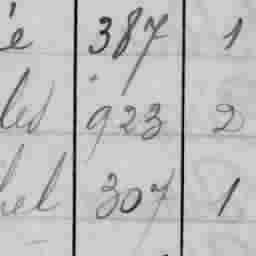 é 387 1
les 923 2
hel 307 1